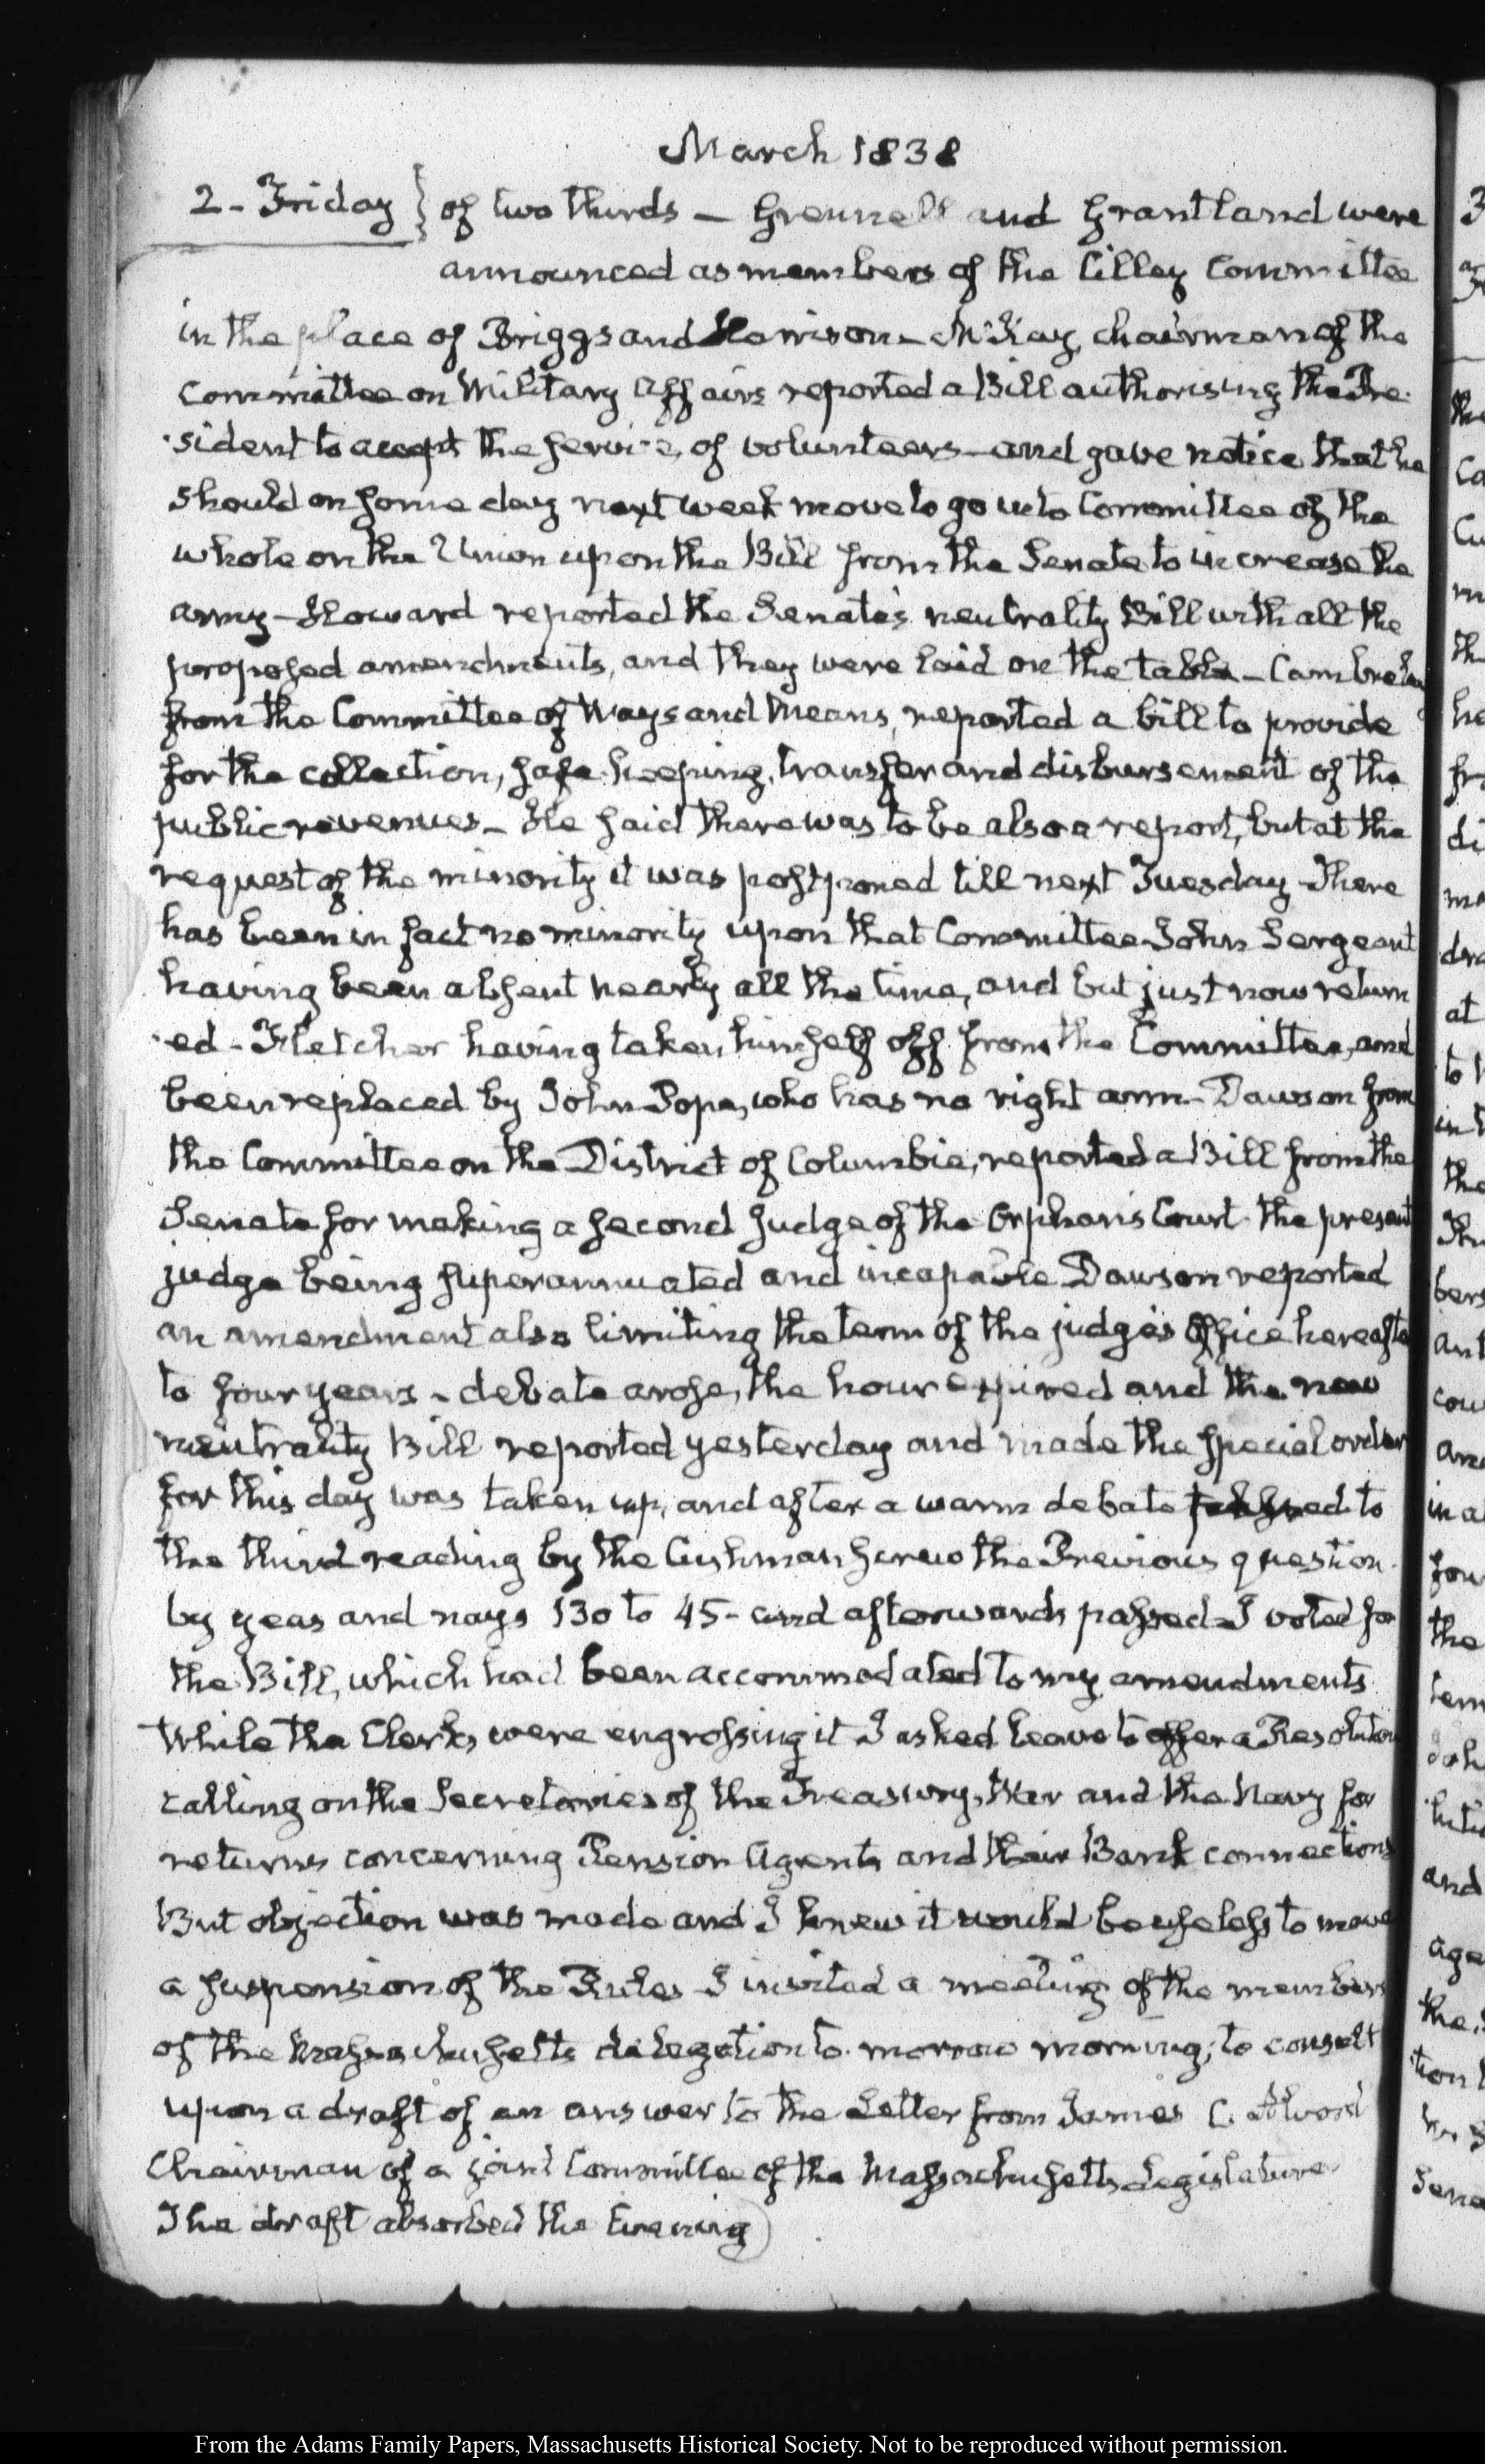 March 1838
2 - Friday } of two thirds — Grennell and Grantland were
announced as members of the Cilley Committee
in the place of Briggs and Harrison — McKay, chairman of the
Committee on Military Affairs reported a Bill authorising the Pre-
-sident to accept the service, of volunteers — and gave notice that he
should on some day next week move to go into Committee of the
whole on the Union upon the Bill from the Senate to increase the
army — Howard reported the Senate's neutrality Bill with all the
proposed amendments, and they were laid on the table — Cambreleng
from the Committee of Ways and Means, reported a bill to provide
for the collection, safe-keeping, transfer and disbursement of the
public revenues — He said there was to be also a report, but at the
request of the minority it was postponed till next Tuesday — There
has been in fact no minority upon that Committee John Sergeant
having been absent nearly all the time, and but just now return
-ed — Fletcher having taken himself off from the Committee, and
been replaced by John Pope, who has no right arm — Dawson from
the Committee on the District of Columbia, reported a Bill from the
Senate for making a second Judge of the Orphan's Court the present
judge being superannuated and incapable Dawson reported
an amendment also limiting the term of the judge's Office hereafter
to four years — debate arose, the hour expired and the new
neutrality Bill reported yesterday and made the special order
for this day was taken up, and after a warm debate to
the third reading by the Cushman screw the Previous question
by yeas and nays 130 to 45 — and afterwards passed — I voted for
the Bill, which had been accommodated to my amendments
While the Clerks were engrossing it I asked leave to offer a Resolution
calling on the Secretaries of the Treasury, War and the Navy for
returns concerning Pension Agents and their Bank connections
But objection was made and I knew it would be useless to move
a suspension of the Rules I invited a meeting of the members
of the Massachusetts delegation to-morrow morning; to consult
upon a draft of an answer to the Letter from James C. Alvord
Chairman of a joint Committee of the Massachusetts Legislature.
The draft absorbed the Evening
From the Adams Family Papers, Massachusetts Historical Society. Not to be reproduced without permission.